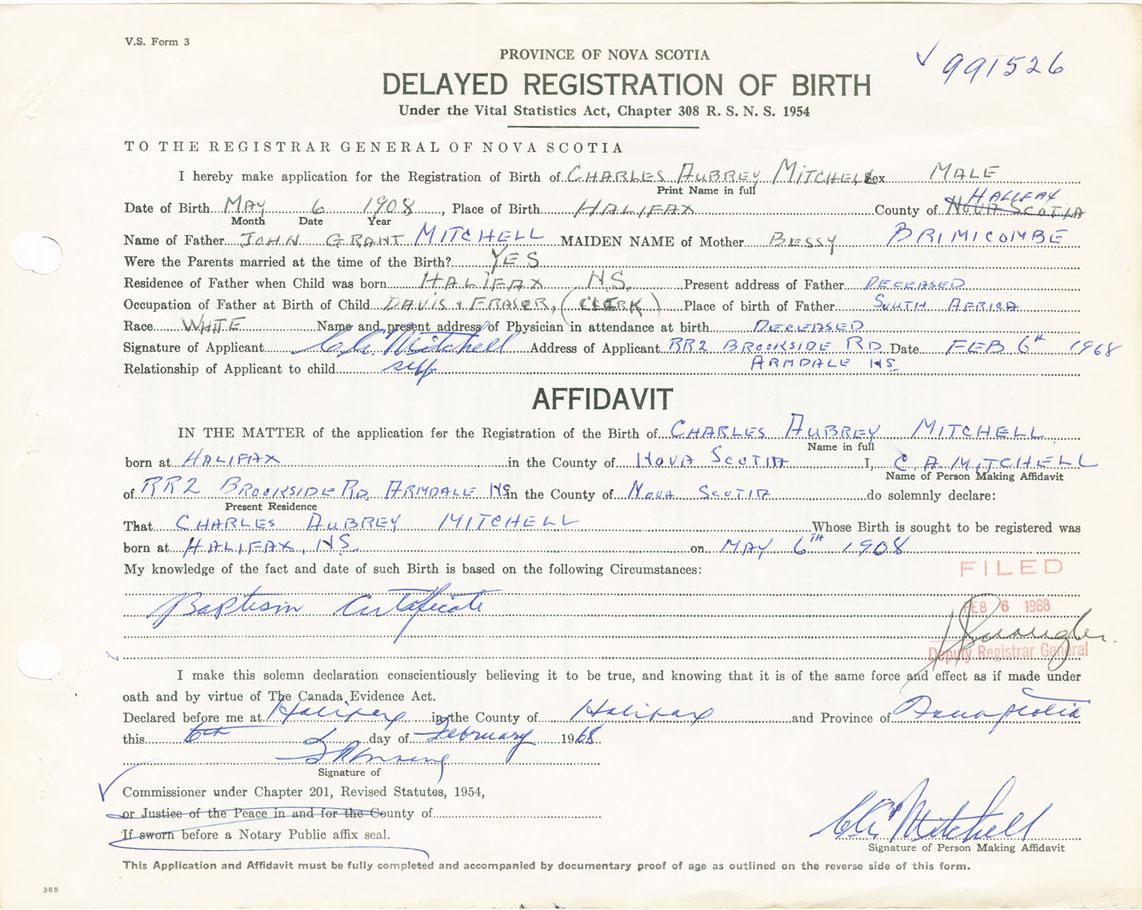 V.S. Form 3
PROVINCE OF NOVA SCOTIA
991526
DELAYED REGISTRATION OF BIRTH
Under the Vital Statistics Act, Chapter 308 R. S. N. S. 1954
TO THE REGISTRAR GENERAL OF NOVA SCOTIA
I hereby make application for the Registration of Birth of CHARLES AUBREY MITCHELL Sex MALE
Print Name in full
HALIFAX
Date of Birth MAY 6 1908, Place of Birth HALIFAX County of NOVA SCOTIA
Month Date Year
Name of Father JOHN GRANT MITCHELL MAIDEN NAME of Mother BESSY BRIMICOMBE
Were the Parents married at the time of the Birth? YES
Residence of Father when Child was born HALIFAX N.S. Present address of Father DECEASED
Occupation of Father at Birth of Child DAVIS & FRASER, (CLERK) Place of birth of Father SOUTH AFRICA
Race WHITE Name and present address of Physician in attendance at birth DECEASED
Signature of Applicant C A Mitchell Address of Applicant RR2 BROOKSIDE RD Date FEB 6th 1968
ARMDALE NS
Relationship of Applicant to child self
AFFIDAVIT
IN THE MATTER of the application for the Registration of the Birth of CHARLES AUBREY MITCHELL
Name in full
born at HALIFAX in the County of NOVA SCOTIA I, C. A. MITCHELL
Name of Person Making Affidavit
of RR2 BROOKSIDE RD. ARMDALE NS in the County of NOVA SCOTIA do solemnly declare:
Present Residence
That CHARLES AUBREY MITCHELL Whose Birth is sought to be registered was
born at HALIFAX, NS. on MAY 6TH 1908
My knowledge of the fact and date of such Birth is based on the following Circumstances:
FILED
Baptism Certificate
FEB 6 1968
Deputy Registrar General
I make this solemn declaration conscientiously believing it to be true, and knowing that it is of the same force and effect as if made under
oath and by virtue of The Canada Evidence Act.
Declared before me at Halifax in the County of Halifax and Province of Nova Scotia
this 6th day of February 1968
Signature of
Commissioner under Chapter 201, Revised Statutes, 1954,
or Justice of the Peace in and for the County of
If sworn before a Notary Public affix seal.
C A Mitchell
Signature of Person Making Affidavit
This Application and Affidavit must be fully completed and accompanied by documentary proof of age as outlined on the reverse side of this form.
385